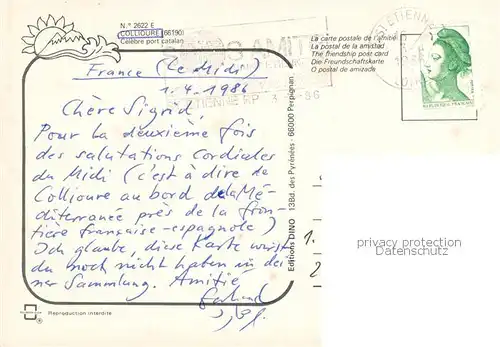 N.° 2622 E
COLLIOURE (66190)
Célèbre port catalan
La carte postale de l'amitié
La postal de la amistad
The friendship post card
Die Freundschaftskarte
O postal de amizade
France (Le Midi)
1.4.1986
Chère Sigrid,
Pour la deuxième fois
des salutations cordiales
du Midi (c'est à dire de
Collioure au bord de la Mé-
diterranée près de la fron-
tière française-espagnole)
Ich glaube, diese Karte wirst
du noch nicht haben in dei-
ner Sammlung. Amitié
Gerhard
Editions DINO 13Bd. des Pyrénées - 66000 Perpignan
1.
2
privacy protection
Datenschutz
Reproduction interdite